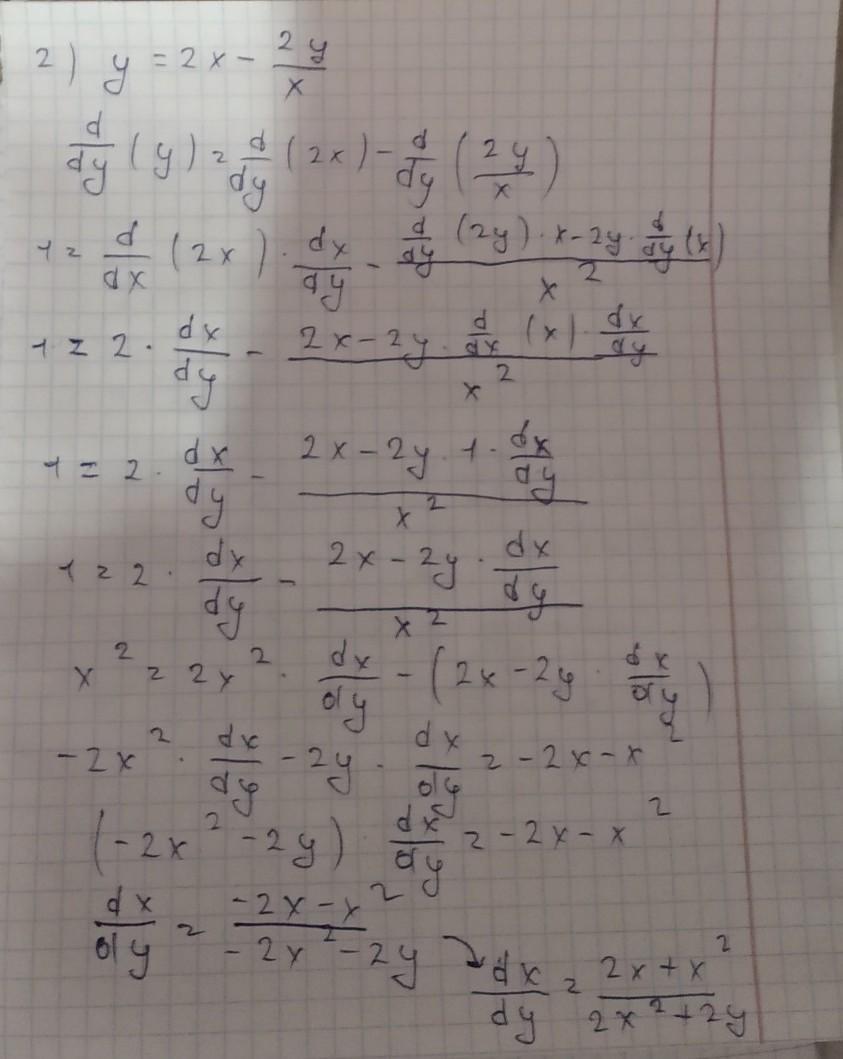 2) y = 2x - 2y/x
d/dy (y) = d/dy (2x) - d/dy (2y/x)
1 = d/dx (2x) · dx/dy - (d/dy (2y) · x - 2y · d/dy (x))/x²
1 = 2 · dx/dy - (2x - 2y · d/dx (x) · dx/dy)/x²
1 = 2 · dx/dy - (2x - 2y · 1 · dx/dy)/x²
1 = 2 · dx/dy - (2x - 2y · dx/dy)/x²
x² = 2x² · dx/dy - (2x - 2y · dx/dy)
-2x² · dx/dy - 2y · dx/dy = -2x - x²
(-2x² - 2y) · dx/dy = -2x - x²
dx/dy = (-2x - x²)/(-2x² - 2y)
dx/dy = (2x + x²)/(2x² + 2y)